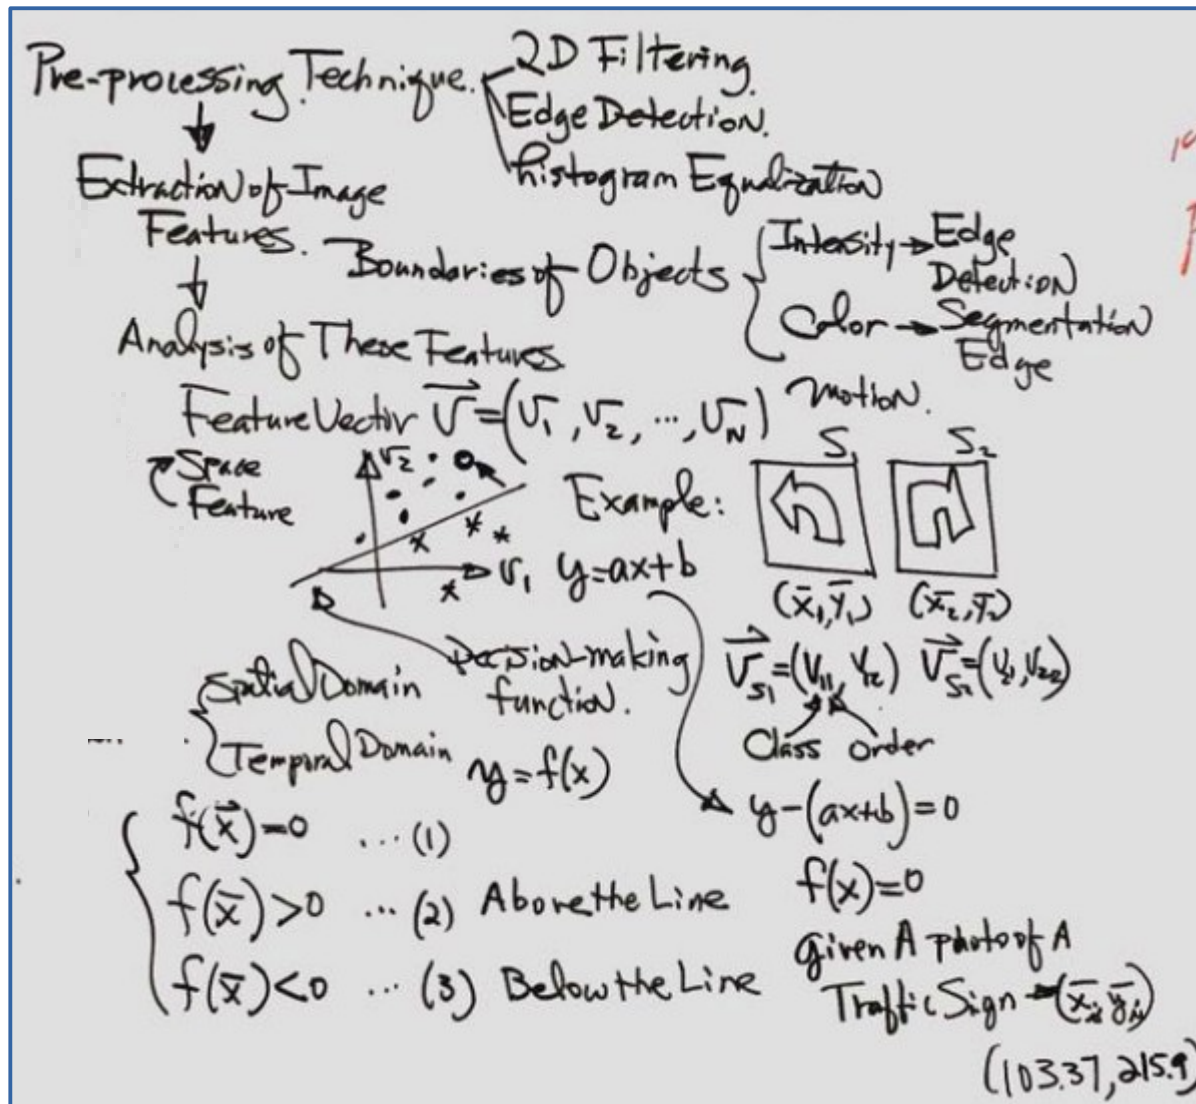 Pre-processing Technique.
2D Filtering.
Edge Detection.
histogram Equalization
Extraction of Image
Features.
Boundaries of Objects
Intensity → Edge
Detection
Color → Segmentation
Edge
motion.
Analysis of These Features
Feature Vector V = (V1, V2, ..., VN)
Space
Feature
V2
V1
y=ax+b
Example:
S1
S2
(x̄1, ȳ1)
(x̄2, ȳ2)
Decision-making
function.
VS1 = (V11, V12)
VS2 = (V21, V22)
Class Order
Spatial Domain
Temporal Domain
y=f(x)
y-(ax+b)=0
f(x)=0
f(x)=0 ...(1)
f(x̄)>0 ...(2) Above the Line
f(x̄)<0 ...(3) Below the Line
given A photo of A
Traffic Sign →
(103.37, 215.9)